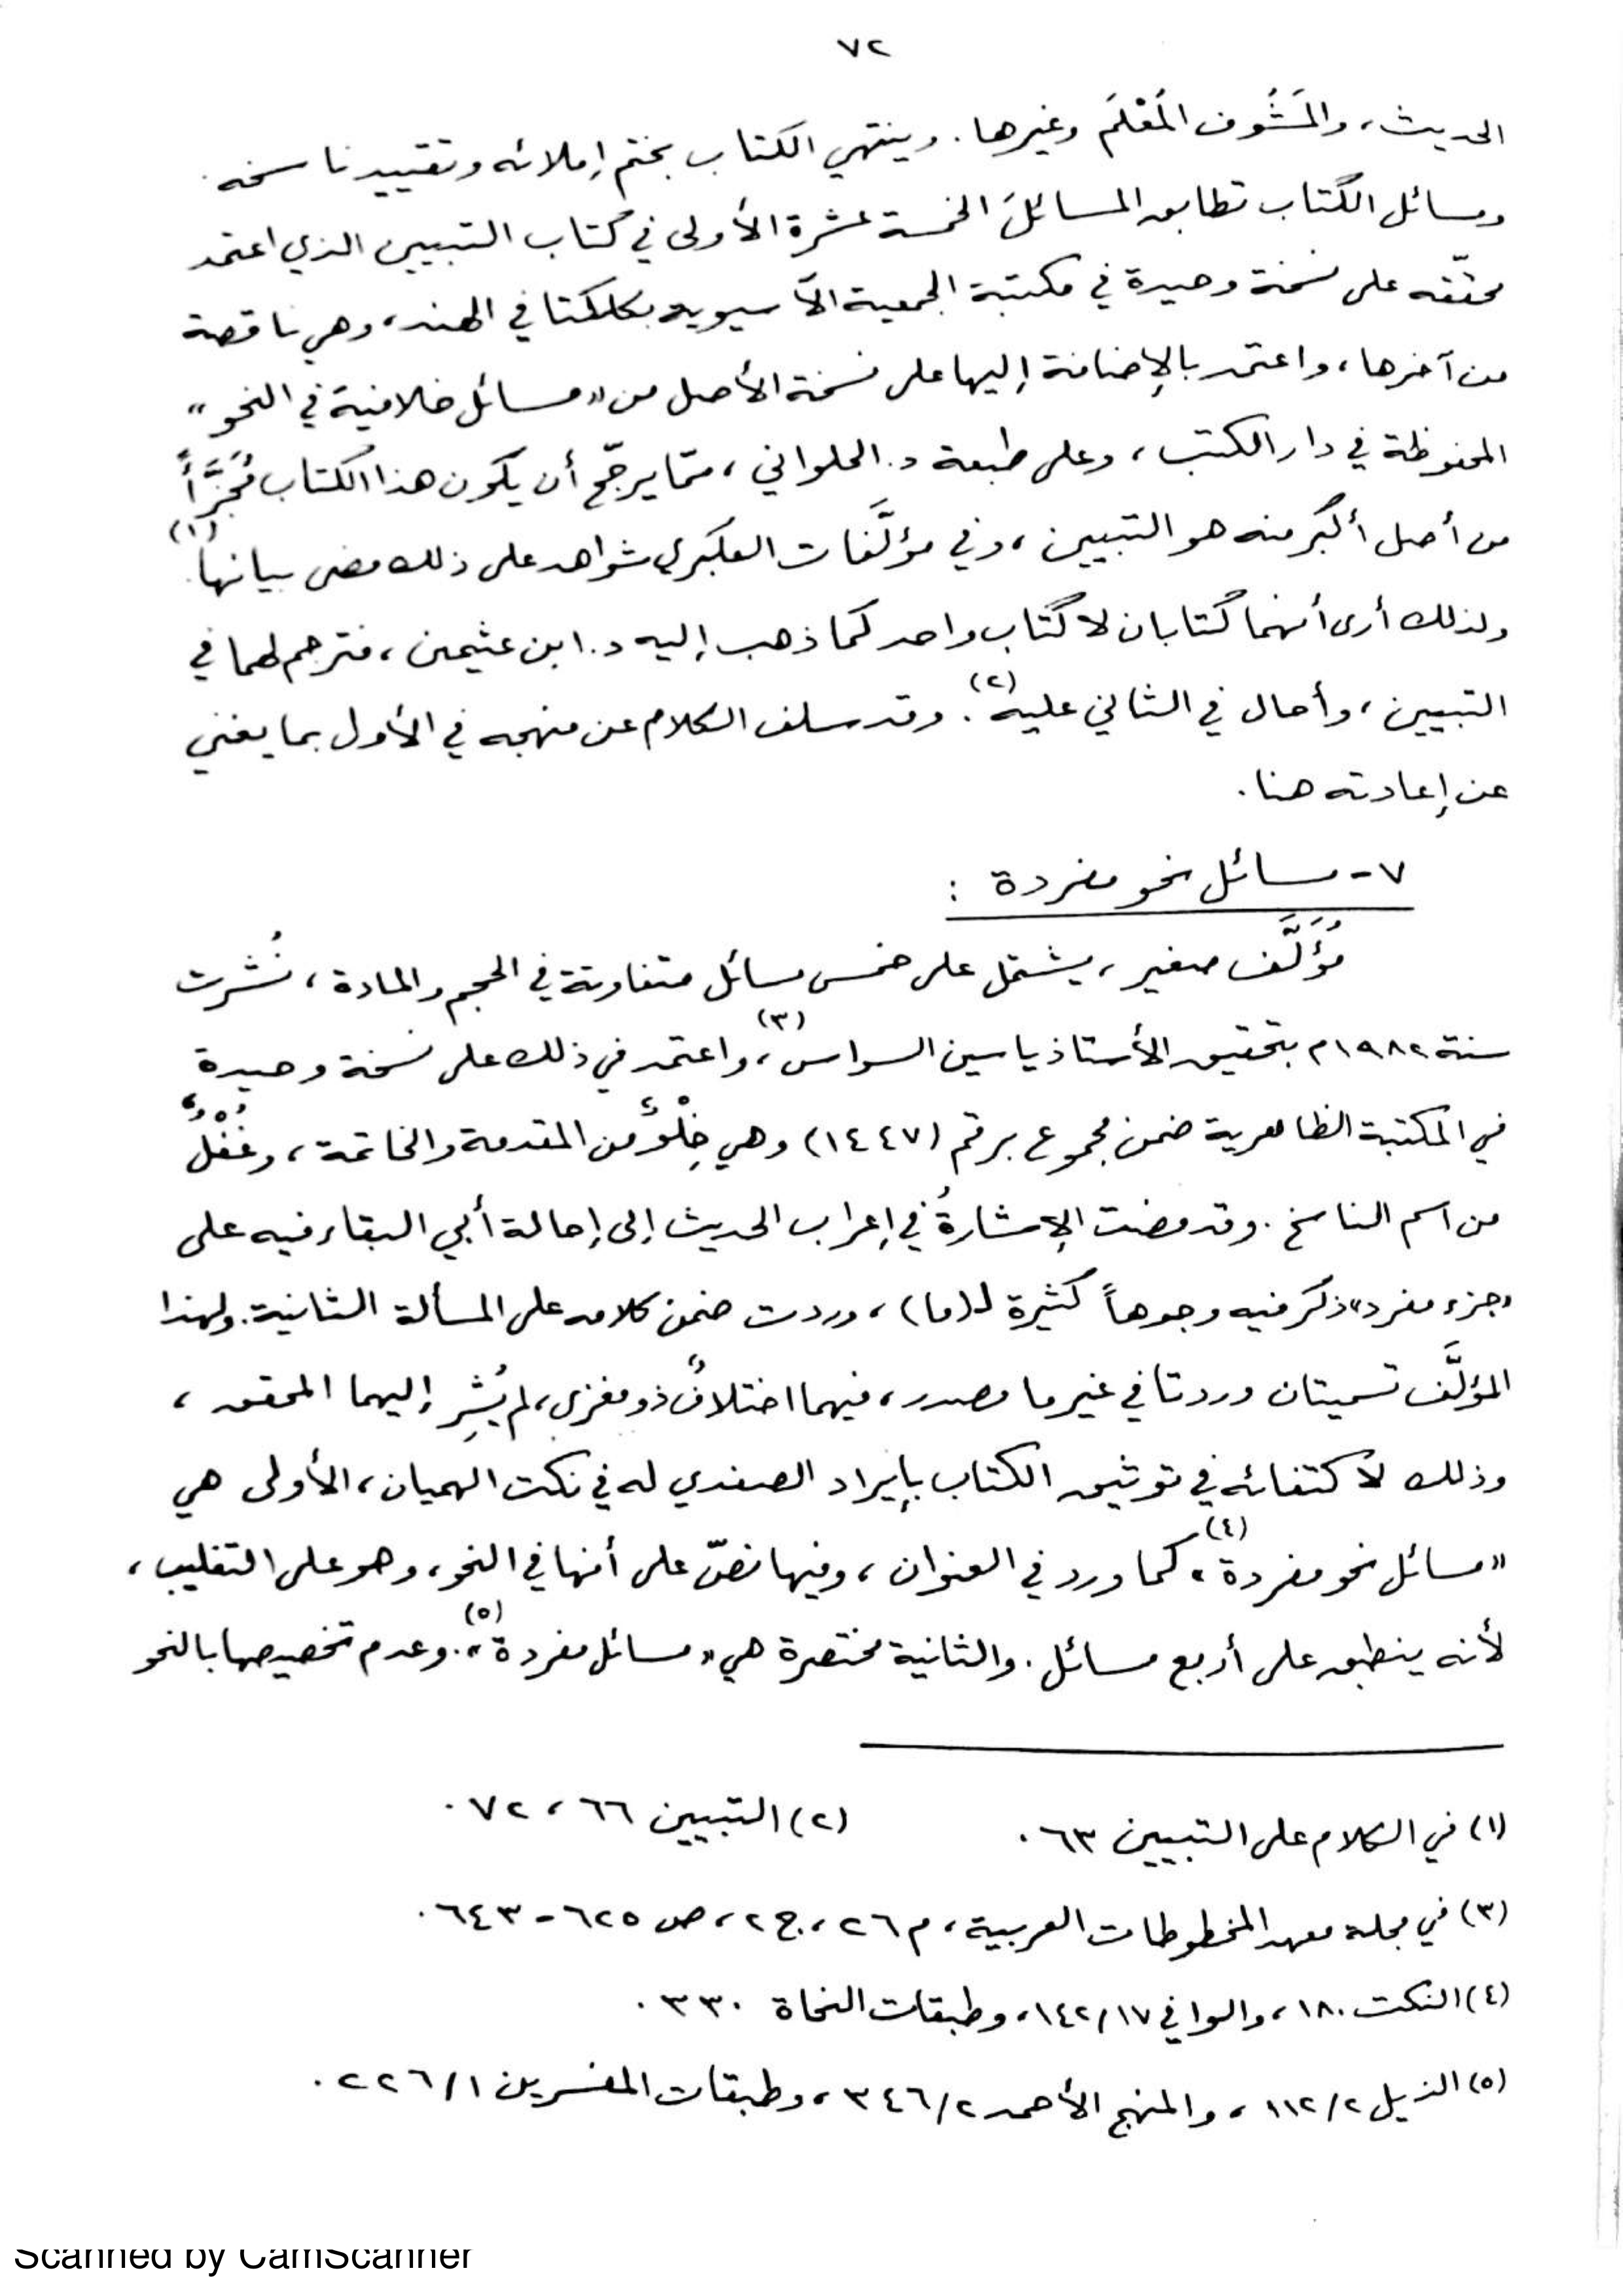 ٧٢
الحديث، والمَشُوف المُعْلَم وغيرها. وينتهي الكتاب بختم إملائه وتقييد ناسخه.
ومسائل الكتاب تطابق المسائلَ الخمسة عشرة الأولى في كتاب التبيين الذي اعتمد
محقّقه على نسخة وحيدة في مكتبة الجمعية الآسيوية بكلكتا في الهند، وهي ناقصة
من آخرها، واعتمد بالإضافة إليها على نسخة الأصل من «مسائل خلافية في النحو»
المحفوظة في دار الكتب، وعلى طبعة د. الحلواني، ممّا يرجّح أن يكون هذا الكتاب مُجَزَّأً
من أصل أكبر منه هو التبيين، وفي مؤلَّفات العكبري شواهد على ذلك مضى بيانها(١).
ولذلك أرى أنهما كتابان لا كتاب واحد كما ذهب إليه د. ابن عثيمين، فترجم لهما في
التبيين، وأحال في الثاني عليه(٢). وقد سلف الكلام عن منهجه في الأول بما يغني
عن إعادته هنا.
٧- مسائل نحو مفردة :
مُؤَلَّف صغير، يشتمل على خمس مسائل متفاوتة في الحجم والمادة، نُشرت
سنة ١٩٨٢م بتحقيق الأستاذ ياسين السواس(٣)، واعتمد في ذلك على نسخة وحيدة
في المكتبة الظاهرية ضمن مجموع برقم (١٤٤٧) وهي خِلْوٌ من المقدمة والخاتمة، وغُفْلٌ
من اسم الناسخ. وقد مضت الإشارةُ في إعراب الحديث إلى إحالة أبي البقاء فيه على
«جزء مفرد» ذكر فيه وجوهاً كثيرة لـ(ما)، وردت ضمن كلامه على المسألة الثانية. ولهذا
المؤلَّف تسميتان وردتا في غير ما مصدر، فيهما اختلافٌ ذو مغزى، لم يُشِر إليهما المحقق،
وذلك لاكتفائه في توثيق الكتاب بإيراد الصفدي له في نكت الهميان، الأولى هي
«مسائل نحو مفردة»(٤) كما ورد في العنوان، وفيها نصّ على أنها في النحو، وهو على التغليب،
لأنه ينطبق على أربع مسائل. والثانية مختصرة هي «مسائل مفردة»(٥). وعدم تخصيصها بالنحو
(١) في الكلام على التبيين ٦٣. (٢) التبيين ٦٦، ٧٢.
(٣) في مجلة معهد المخطوطات العربية، م ٢٦، ج ٢، ص ٦٢٥-٦٤٣.
(٤) النكت ١٨٠، والوافي ١٤٢/١٧، وطبقات النحاة ٣٣٠.
(٥) الذيل ١١٢/٢، والمنهج الأحمد ٣٤٦/٢، وطبقات المفسرين ٢٢٦/١.
Scanned by CamScanner